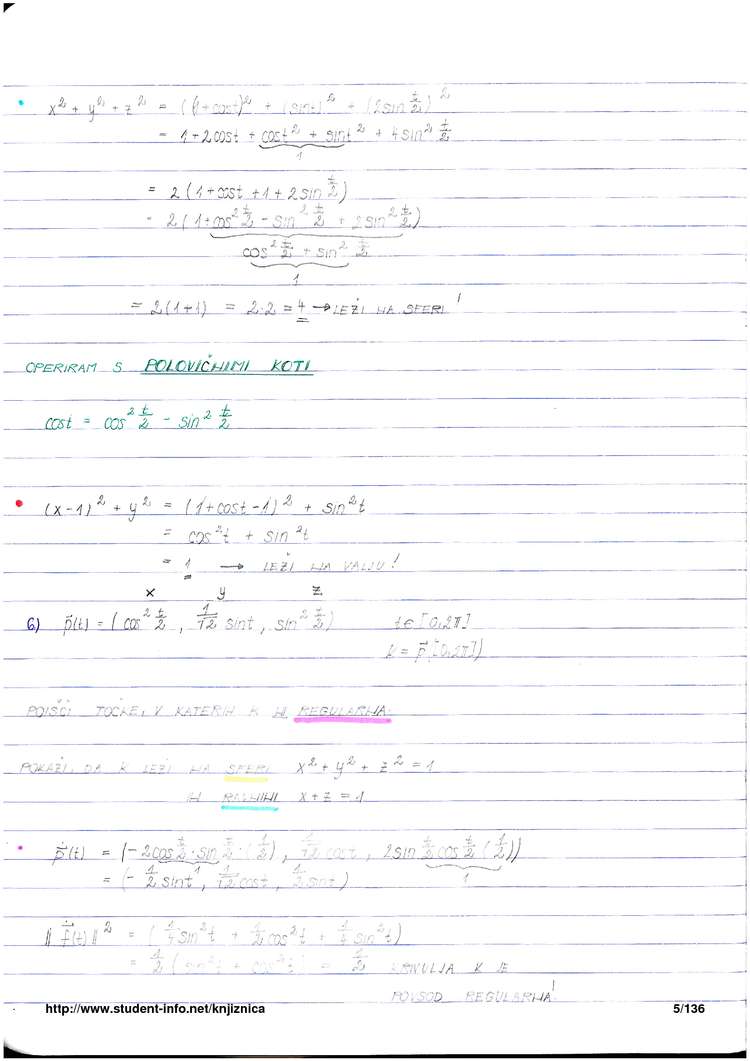 • x² + y² + z² = (1+cost)² + (sint)² + (2sin t/2)²
= 1+2cost + cost² + sint² + 4sin² t/2
1
= 2(1+cost+1+2sin t/2)
= 2(1+cos² t/2 - sin² t/2 + 2sin² t/2)
cos² t/2 + sin² t/2
1
= 2(1+1) = 2·2 = 4 → LEŽI NA SFERI!
OPERIRAM S POLOVIČNIMI KOTI
cost = cos² t/2 - sin² t/2
• (x-1)² + y² = (1+cost-1)² + sin²t
= cos²t + sin²t
= 1 → LEŽI NA VALJU!
x y z
6) p⃗(t) = (cos² t/2, 1/√2 sint, sin² t/2) t∈[0,2π]
K = p⃗([0,2π])
POIŠČI TOČKE, V KATERIH K NI REGULARNA.
POKAŽI, DA K LEŽI NA SFERI x² + y² + z² = 1
IN RAVNINI x+z = 1
• ṗ⃗(t) = (-2cos t/2 · sin t/2 · (1/2), 1/√2 cost, 2sin t/2 cos t/2 (1/2))
1 1
= (-1/2 sint, 1/√2 cost, 1/2 sint)
||ṙ⃗(t)||² = (1/4 sin²t + 1/2 cos²t + 1/4 sin²t)
= 1/2 (sin²t + cos²t) = 1/2 KRIVULJA K JE
POVSOD REGULARNA!
http://www.student-info.net/knjiznica 5/136